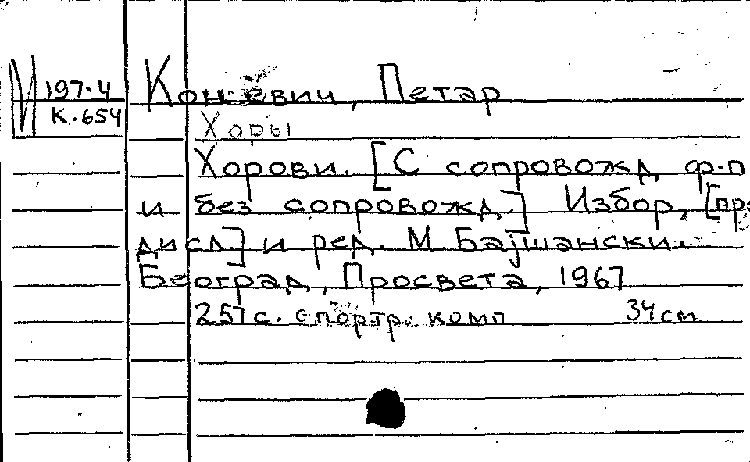 М 197-4 Коњевич, Петар
К.654
Хоры
Хорови. [С сопровожд. ф-п
и без сопровожд.] Избор, [пре
дисл] и ред. М Бајшански.
Београд, Просвета, 1967
257 с. с портр. комп 34 см